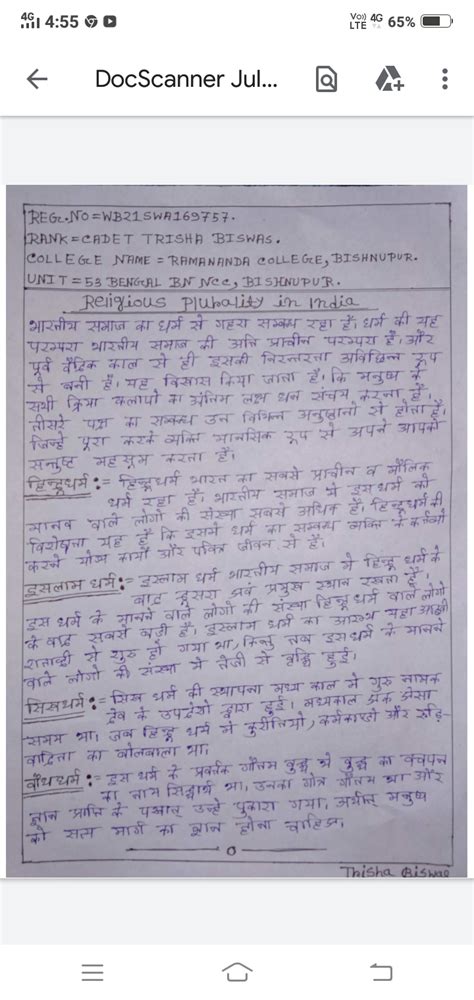 4G 4:55 Vo)) LTE 4G 65%
DocScanner Jul...
REG.NO=WB21SWA169757.
RANK=CADET TRISHA BISWAS.
COLLEGE NAME=RAMANANDA COLLEGE, BISHNUPUR.
UNIT=53 BENGAL BN NCC, BISHNUPUR.
Religious Plurality in India
भारतीय समाज का धर्म से गहरा सम्बन्ध रहा हैं। धर्म की यह
परम्परा भारतीय समाज की अति प्राचीन परम्परा हैं, और
पूर्व वैदिक काल से ही इसकी निरन्तरता अविछिन्न रूप
से बनी हैं, यह विश्वास किया जाता हैं, कि मनुष्य के
सभी क्रिया कलापों का अंतिम लक्ष धन संचय करना हैं,
तीसरे पक्ष का सम्बन्ध उन विभिन्न अनुष्ठानों से होता हैं,
जिन्हें पूरा करके व्यक्ति मानसिक रूप से अपने आपको
सन्तुष्ट महसूस करता हैं।
हिन्दूधर्म := हिन्दूधर्म भारत का सबसे प्राचीन व मौलिक
धर्म रहा हैं। भारतीय समाज मे इस धर्म को
मानव वाले लोगों की संख्या सबसे अधिक हैं। हिन्दूधर्म की
विशेषता यह हैं कि इसमें धर्म का सम्बन्ध व्यक्ति के कर्तव्यों
करने योग्य कार्यों और पवित्र जीवन से हैं।
इसलाम धर्म := इस्लाम धर्म भारतीय समाज मे हिन्दू धर्म के
बाद दूसरा एवं प्रमुख स्थान रखता हैं।
इस धर्म के मानने वाले लोगों की संख्या हिन्दू धर्म वाले लोगो
के बाद सबसे बड़ी हैं। इस्लाम धर्म का आरम्भ यहा आठवी
शताब्दी से शुरू हो गया था, किन्तु तब इस धर्म के मानने
वाले लोगों की संख्या मे तेजी से वृद्धि हुई।
सिखधर्म := सिख धर्म की स्थापना मध्य काल में गुरु नानक
देव के उपदेशों द्वारा हुई। मध्यकाल एक ऐसा
समय था। जब हिन्दू धर्म में कुरीतियों, कर्मकाण्डों और रूढ़ि-
वादिता का बोलबाला था।
बौधधर्म := इस धर्म के प्रवर्तक गौतम बुद्ध थे बुद्ध का बचपन
का नाम सिद्धार्थ था, उनका गोत्र गौतम था और
ज्ञान प्राप्ति के पश्चात् उन्हें पुकारा गया, अर्थात् मनुष्य
को सत्य मार्ग का ज्ञान होना चाहिए।
Trisha Biswas